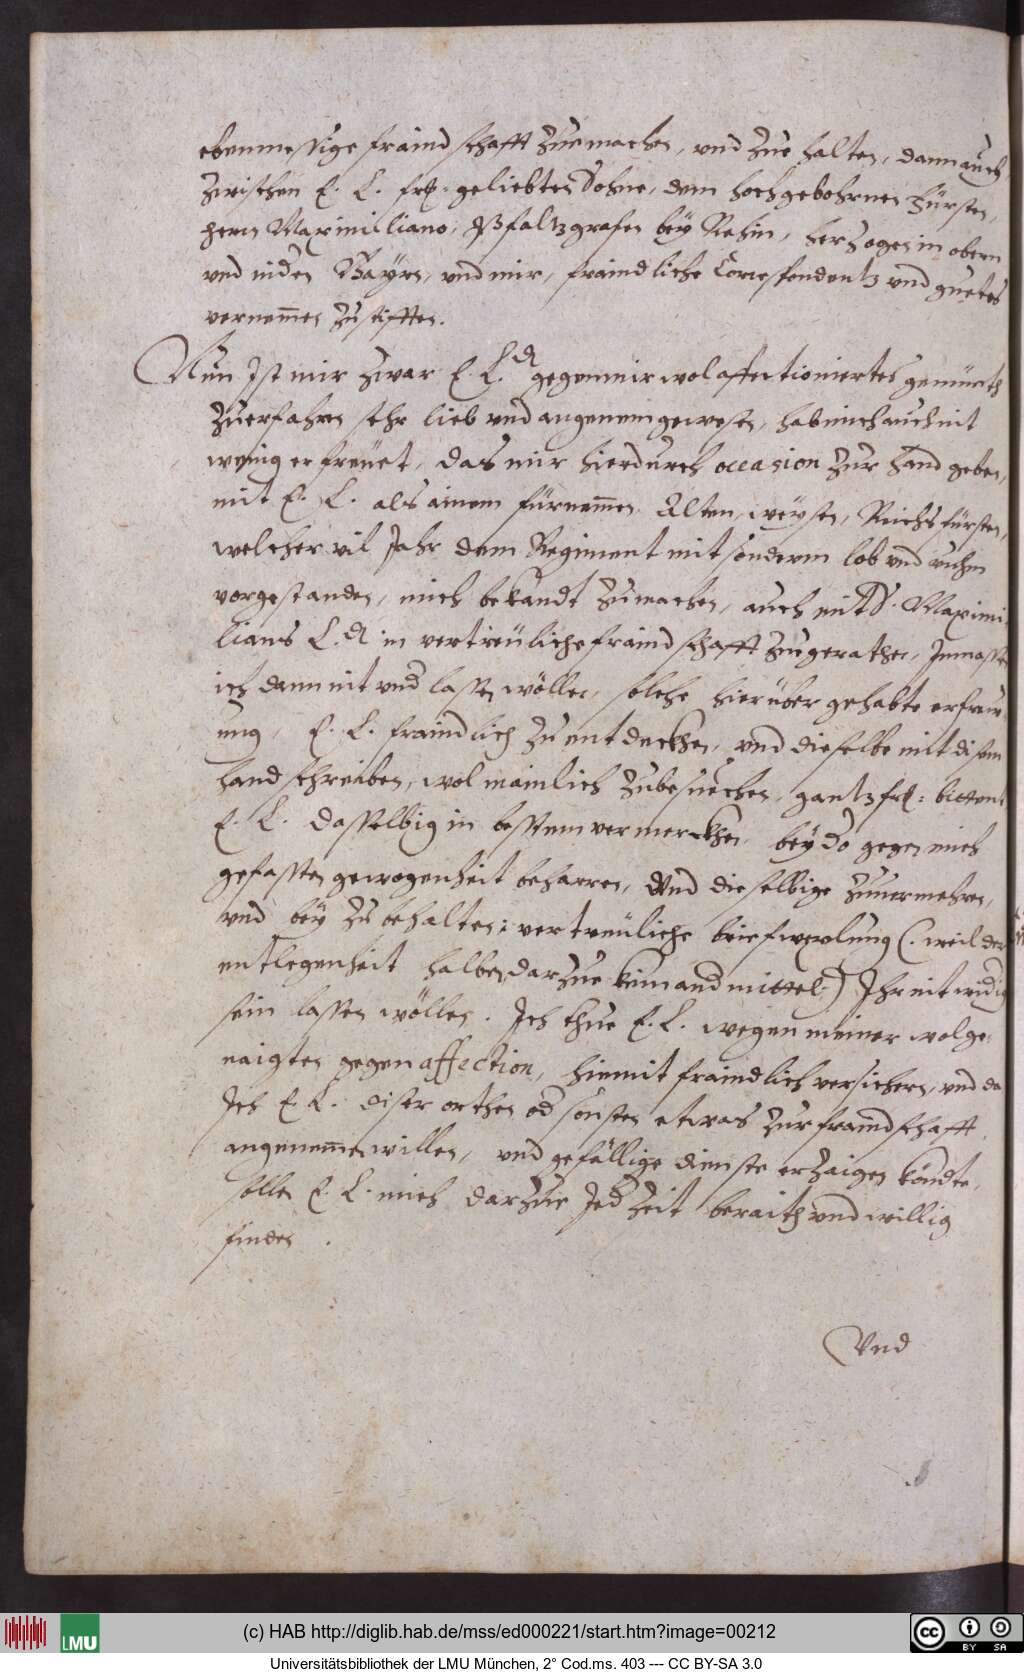 ebenmessige fraindschafft zuemachen, vnd zue halten, dann auch
zwischen E. L. frl. geliebten Sohne, dem hochgebohrnen Fürsten,
herrn Maximiliano, Pfaltzgrafen bey Rehin, herzogen in obern
vnd nidern Bayrn, vnd mir, fraindliche Correspondentz vnd guetes
vernemmen zustifften.
Nun Ist mir zwar E. L.d gegen mir wol affectioniertes gemüeth
zuerfahren sehr lieb vnd angenem gewesen, hab mich auch nit
wenig erfreuet, das mir hierdurch occasion zur hand geben,
mit E. L. als ainem fürnemmen Alten, weysen, Reichsfürsten,
welcher vil Jahr dem Regiment mit sonderm lob vnd ruhm
vorgestanden, mich bekandt zumachen, auch mit Maximi
lians L.d in vertreuliche fraindschafft zuegerathen, Inmassen
ich dann nit vnd lassen wöllen, solche hierüber gehabte erfrew
ung, E. L. fraindlich zu entdeckhen, vnd dieselbe mit disem
handschreiben, wolmainlich zubesuechen, gantz frl: bittent
E. L. dasselbig in bestem vermerckhen, bey do gegen mich
gefasten gewogenheit beharren, vnd dieselbige zuuermehren,
vnd bey zu behalten: vertreuliche briefwexlung (. weil der
entlegenheit halben, darzue kein and mittel.) Ihr nit widig
sein lassen wöllen. Ich thue E. L. wegen meiner wolge:
naigten gegen affection, hiemit fraindlich versichern, vnd da
Ich E. L. diser orthen od sonsten etwas zur fraindschafft
angenemmen willen, vnd gefällige dienste erzaigen köndte,
sollen E. L. mich darzue Jed Zeit beraith vnd willig
finden.
Vnd
(c) HAB http://diglib.hab.de/mss/ed000221/start.htm?image=00212
LMU
cc BY SA
Universitätsbibliothek der LMU München, 2° Cod.ms. 403 --- CC BY-SA 3.0